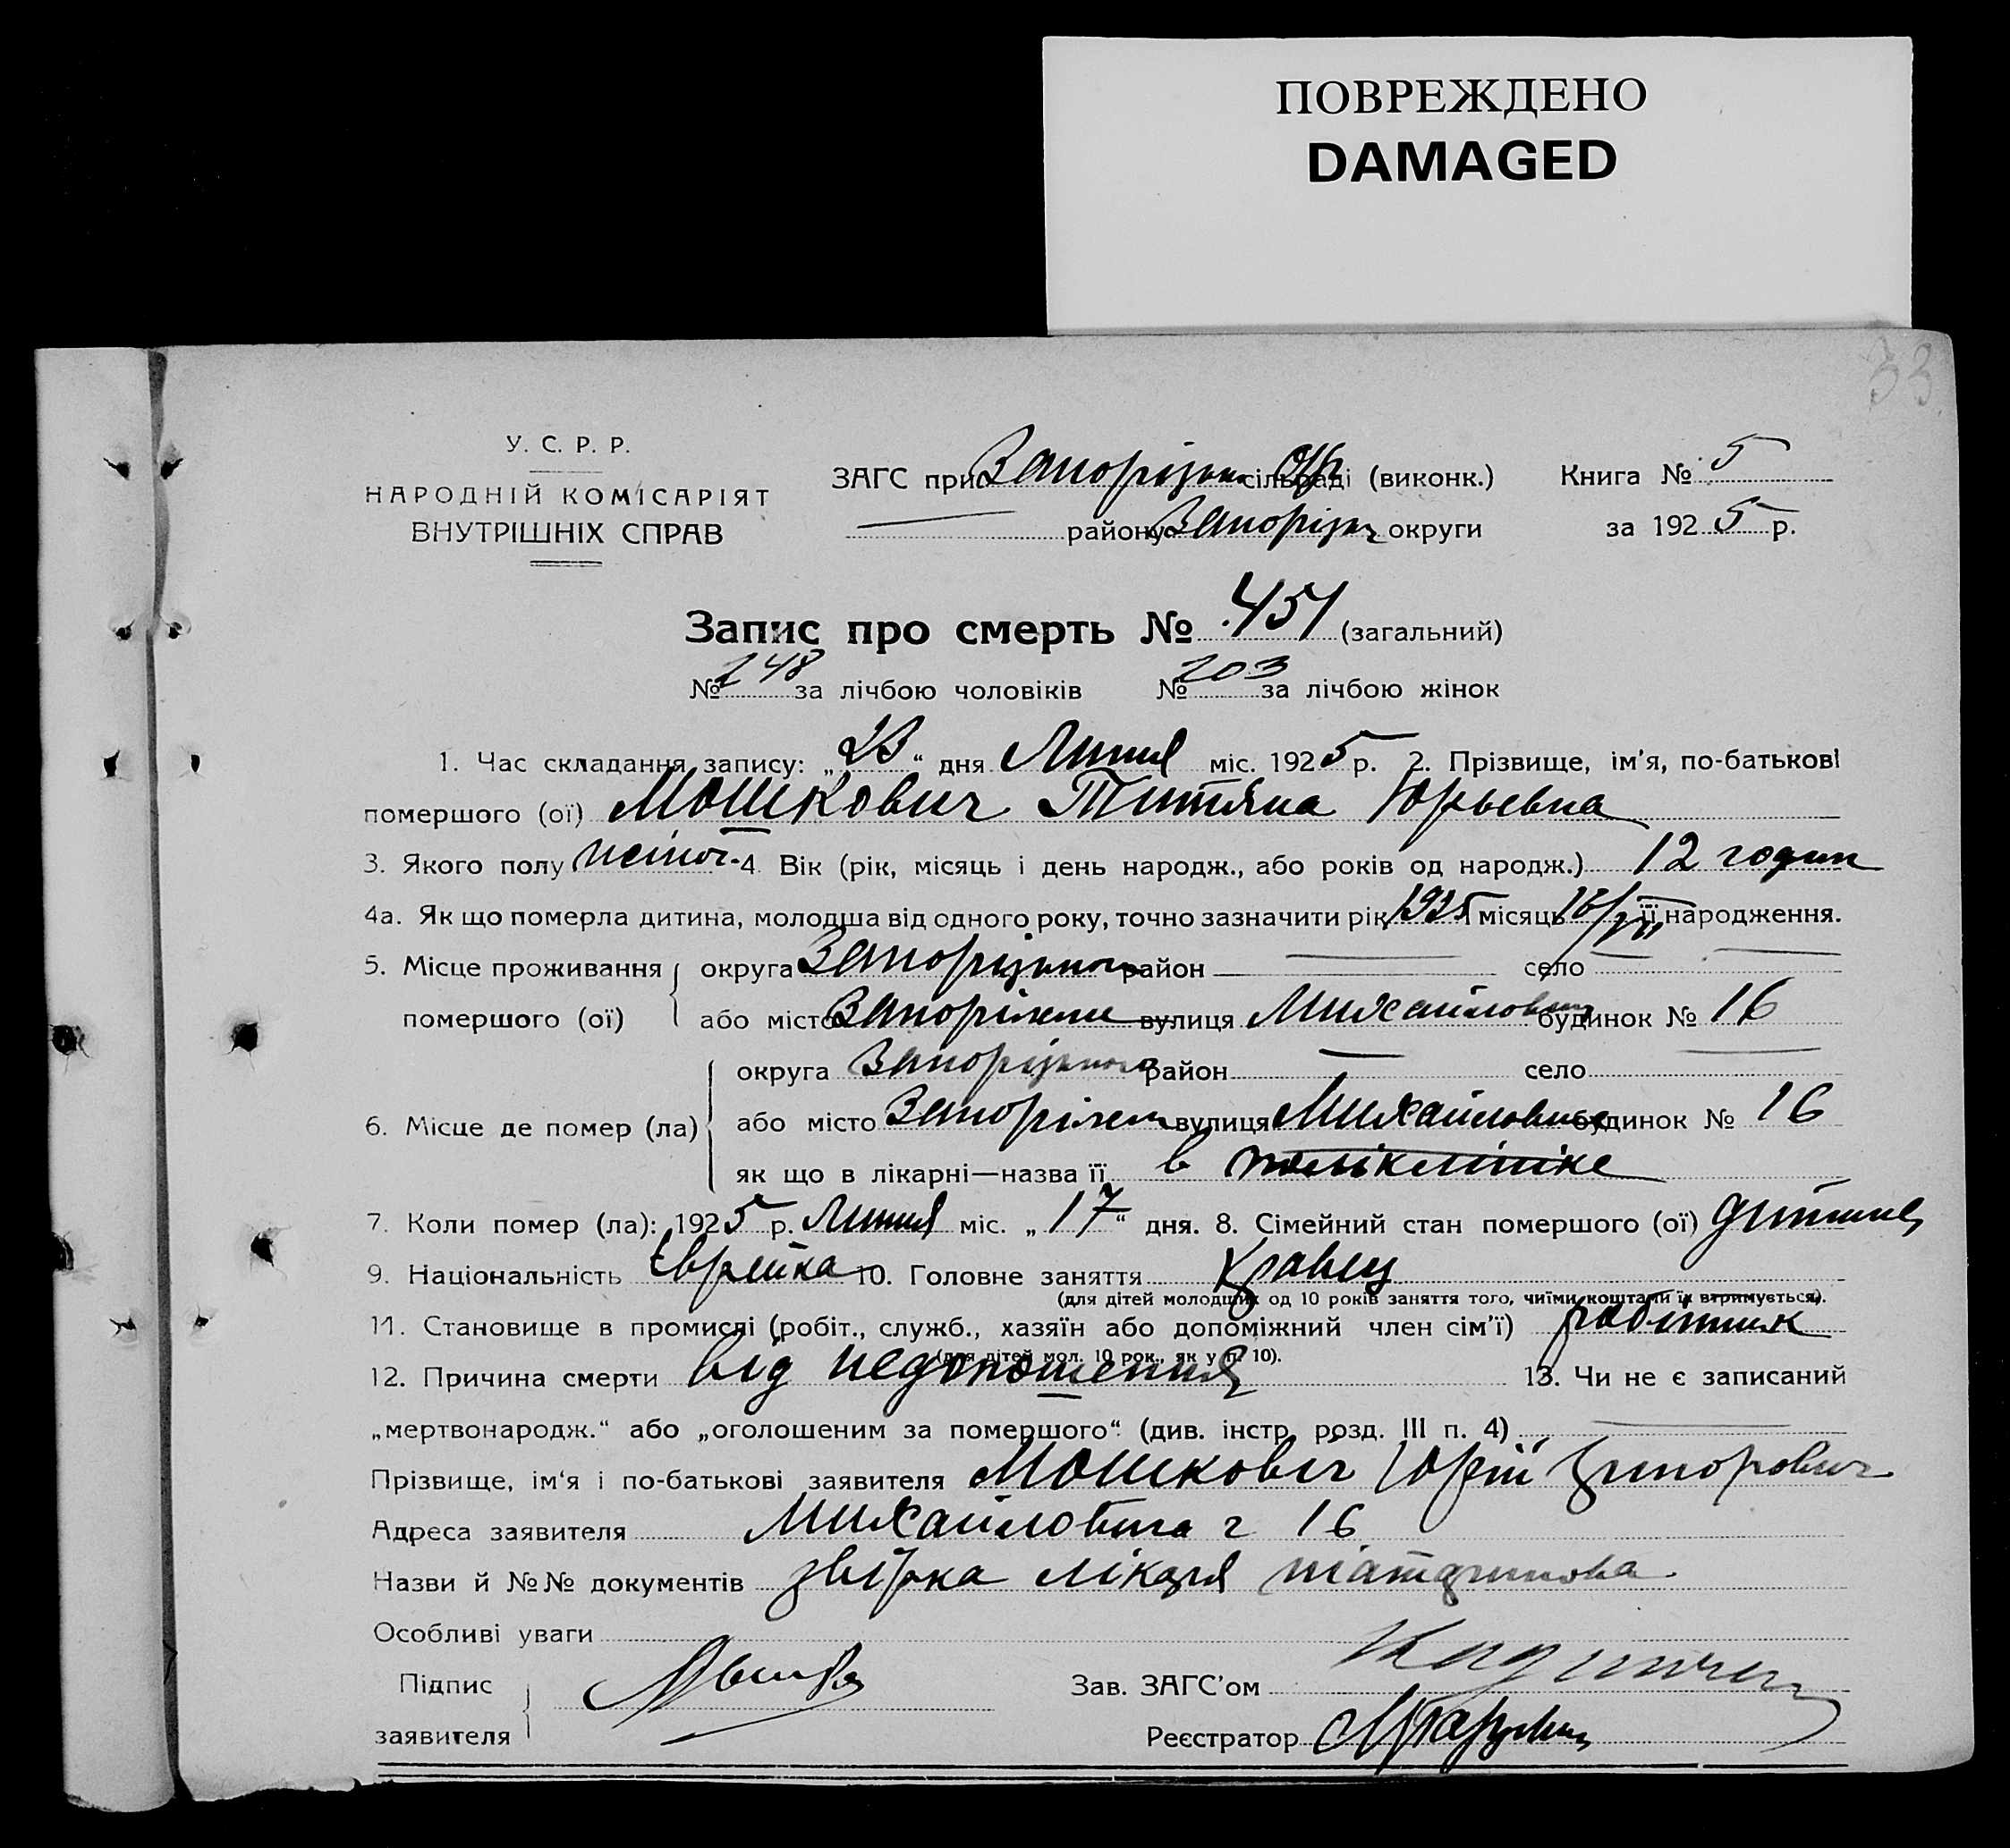 ПОВРЕЖДЕНО
DAMAGED
33
У. С. Р. Р.
НАРОДНІЙ КОМІСАРІЯТ
ВНУТРІШНІХ СПРАВ
ЗАГС при сільраді (виконк.) Книга № 5
району округи за 1925 р.
Запис про смерть № 451 (загальний)
№ 248 за лічбою чоловіків № 203 за лічбою жінок
1. Час складання запису: „23“ дня Липня міс. 1925 р. 2. Прізвище, ім'я, по-батькові
помершого (ої) Мошкович Титяна Юрьевна
3. Якого полу жіноч. 4. Вік (рік, місяць і день народж., або років од народж.) 12 годин
4а. Як що померла дитина, молодша від одного року, точно зазначити рік 1925 місяць 16/VII її народження.
5. Місце проживання округа район село
помершого (ої) або місто Запоріжжя вулиця будинок № 16
округа район село
6. Місце де помер (ла) або місто вулиця будинок № 16
як що в лікарні—назва її в поликлініке
7. Коли помер (ла): 1925 р. Липня міс. „17“ дня. 8. Сімейний стан помершого (ої) дитина
9. Національність Єврейка 10. Головне заняття Кравец
(для дітей молодших од 10 років заняття того, чиїми коштами їх втримується).
11. Становище в промислі (робіт., служб., хазяїн або допоміжний член сім'ї) робітник
(для дітей мол. 10 рок., як у п. 10).
12. Причина смерти від недоношення 13. Чи не є записаний
„мертвонародж.“ або „оголошеним за помершого“ (див. інстр. розд. III п. 4)
Прізвище, ім'я і по-батькові заявителя Мошковіч Юрій
Адреса заявителя 16
Назви й №№ документів лікаря
Особливі уваги
Підпис
заявителя
Зав. ЗАГС'ом
Реєстратор